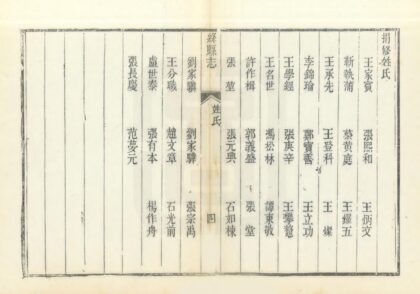 捐修姓氏
王家賓 張熙和 王倬文
靳執蒲 蔡黃庭 王耀五
王承先 王登科 王燦
李錦瑜 鄭寶善 王立功
王學經 張庚辛 王攀鼇
王名世 馮松林 譚東敏
許作楫 郭義盛 張堂
張堃 張元典 石如棟
絳縣志 姓氏 四
劉家驊 劉家驊 張宗禹
王分職 趙文章 石光前
盧世泰 張有本 楊作舟
張長慶 范夢元